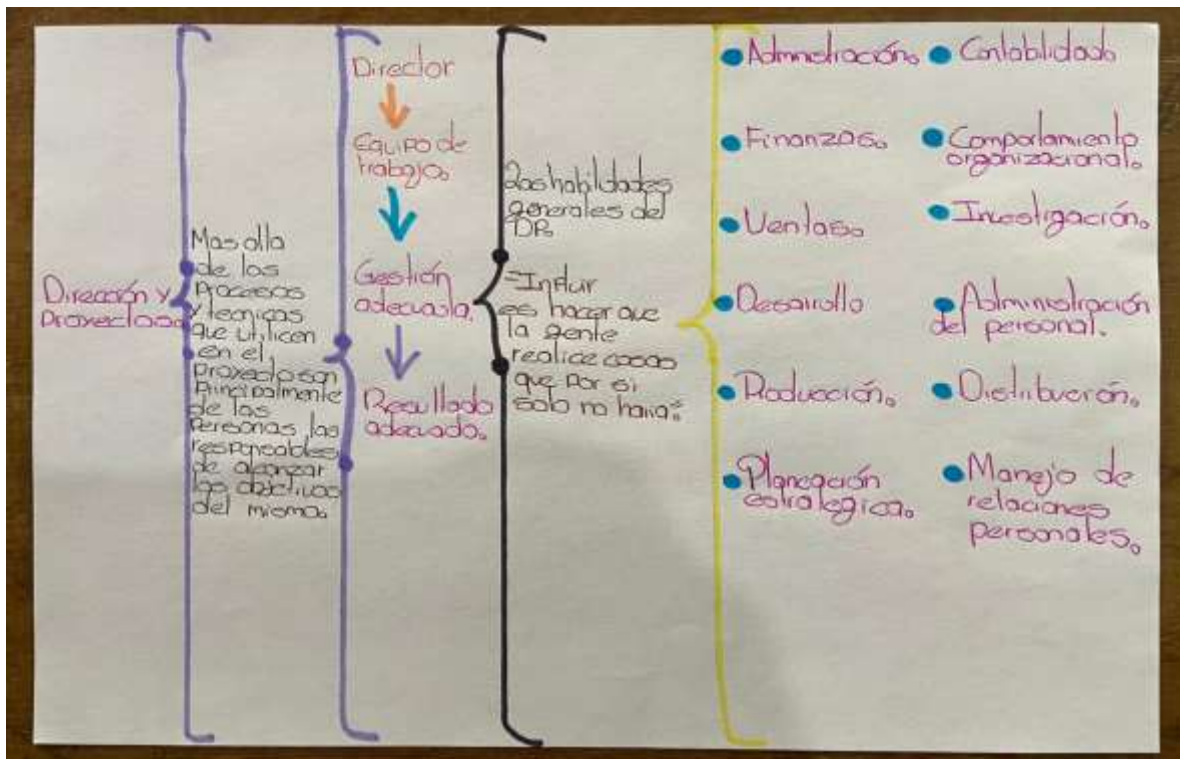 Dirección y
Proyectos.
Mas alla
de los
Procesos
y tecnicas
que utilicen
en el
proyecto son
Principalmente
de las
Personas las
responsables
de alcanzar
los objetivos
del mismo.
Director
Equipo de
trabajo.
Gestión
adecuada.
Resultado
adecuado.
Las habilidades
generales del
DP.
"Influir
es hacer que
la gente
realice cosas
que por si
solo no haria"
Administración.
Finanzas.
Ventas.
Desarrollo
Producción.
Planeación
estrategica.
Contabilidad
Comportamiento
organizacional.
Investigación.
Administración
del personal.
Distribución.
Manejo de
relaciones
personales.